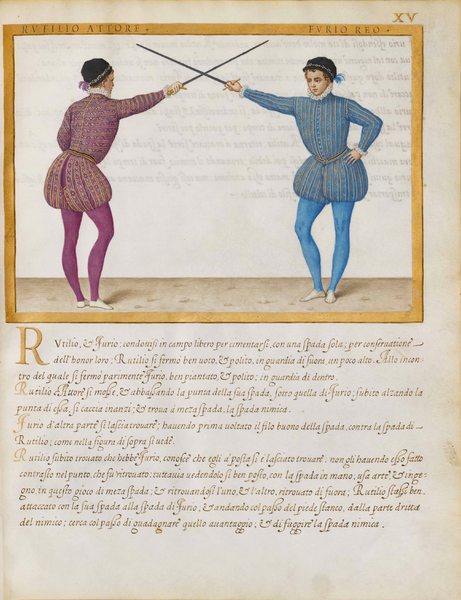 XV
RUTILIO ATTORE · FURIO REO ·
RUtilio, & Furio; condottisi in campo libero per cimentarsi, con una spada sola; per conservatione
dell'honor loro; Rutilio si fermò ben voto, & polito, in guardia di fuora, un poco alto. All'incon-
tro del quale si fermò parimente Furio, ben piantato, & polito; in guardia di dentro.
Rutilio Attore si mosse, & abbassando la punta della sua spada, sotto quella di Furio; subito alzando la
punta di essa, si caccia inanzi; & trova a meza spada, la spada nimica.
Furio d'altra parte si lascia trovare; havendo prima voltato il filo buono della spada, contra la spada di
Rutilio; come nella figura di sopra si vede.
Rutilio subito trovato che hebbe Furio, conosce che egli a posta si è lasciato trovare; non gli havendo esso fatto
contrasto nel punto, che fu ritrovato; tuttavia vedendolo si ben posto, con la spada in mano; usa arte & inge-
gno, in questo gioco di meza spada; & ritrovandosi l'uno, & l'altro, ritrovato di fuora; Rutilio stassi ben
attaccato con la sua spada alla spada di Furio; & andando col passo del piede stanco, dalla parte dritta
del nimico; cerca col passo di guadagnare quello avantaggio; & di fuggire la spada nimica.